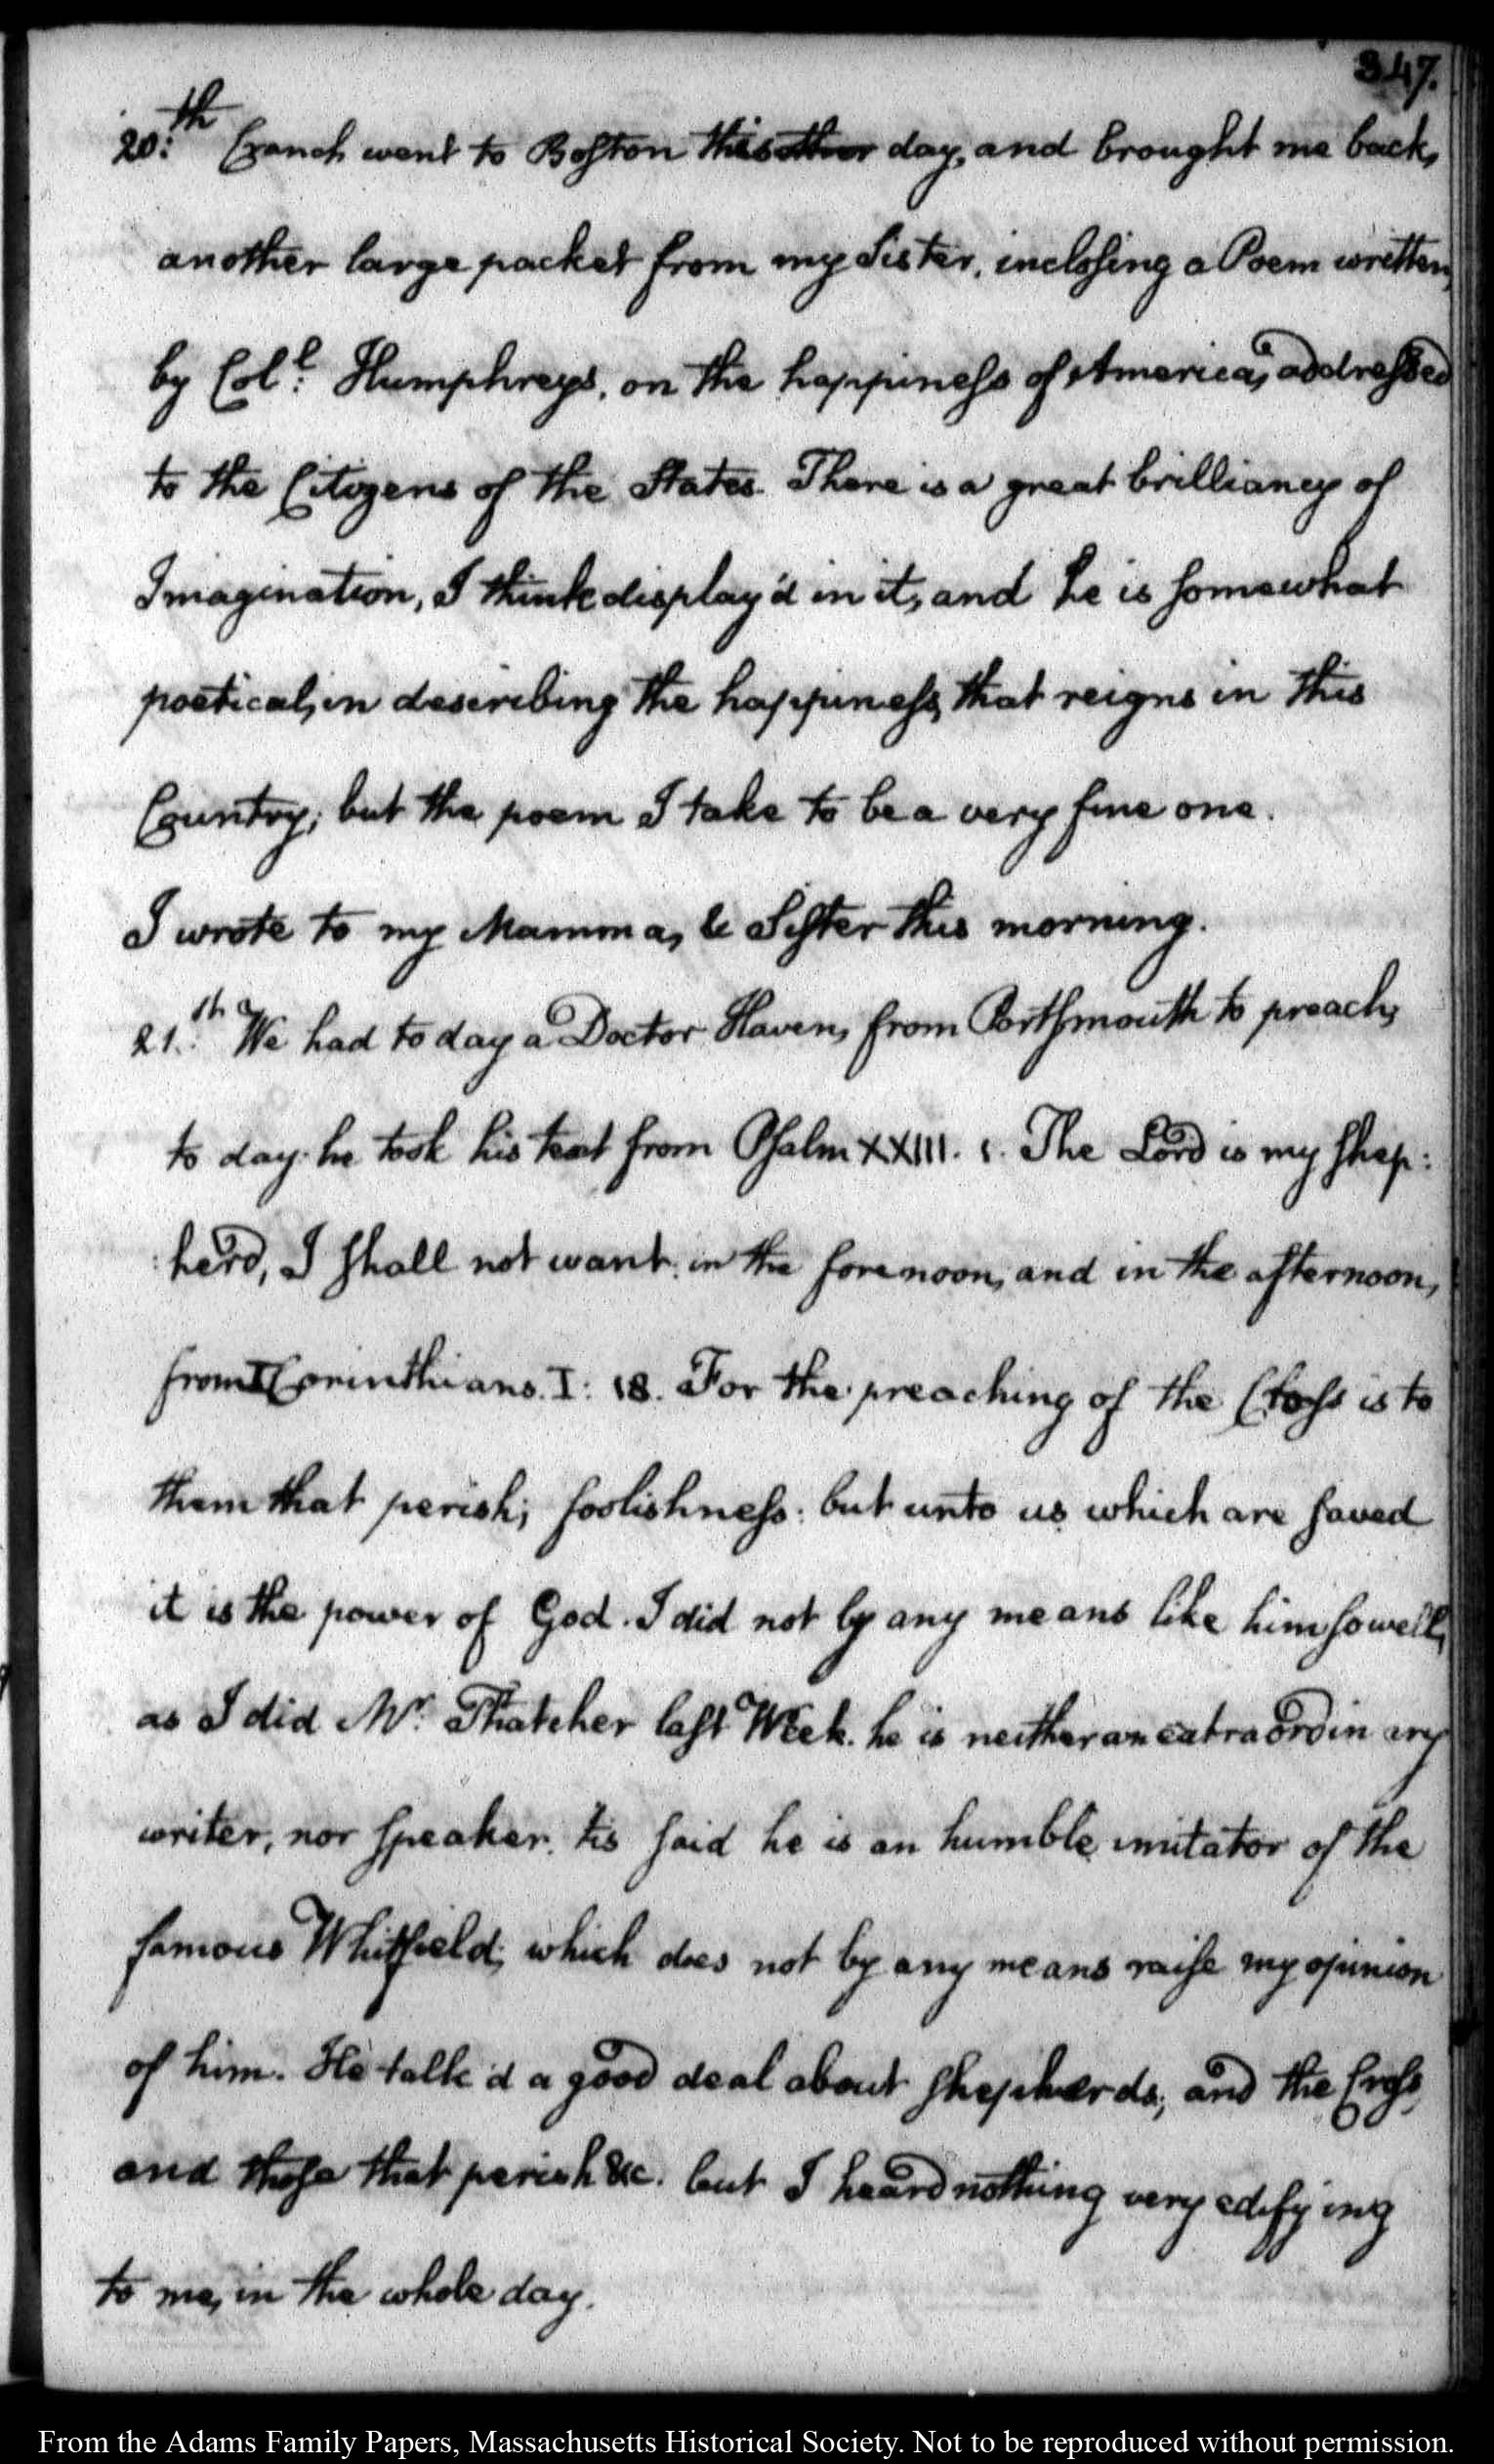 347.
20.th Cranch went to Boston this other day, and brought me back,
another large packet from my Sister, inclosing a Poem written,
by Coll. Humphreys, on the happiness of America, addressed
to the Citizens of the States. There is a great brilliancy of
Imagination, I think display'd in it, and he is somewhat
poetical, in describing the happiness, that reigns in this
Country; but the poem I take to be a very fine one.
I wrote to my Mamma, & Sister this morning.
21.st We had to day a Doctor Haven, from Portsmouth to preach,
to day. he took his text from Psalm XXIII. 1. The Lord is my shep:
herd, I shall not want: in the forenoon, and in the afternoon,
from I Corinthians. I: 18. For the preaching of the Cross is to
them that perish; foolishness: but unto us which are saved
it is the power of God. I did not by any means like him so well,
as I did Mr. Thatcher last Week. he is neither an extraordinary
writer, nor speaker. tis said he is an humble imitator of the
famous Whitfield; which does not by any means raise my opinion
of him. He talk'd a good deal about shepherds, and the Cross,
and those that perish &c. but I heard nothing very edifying
to me, in the whole day.
From the Adams Family Papers, Massachusetts Historical Society. Not to be reproduced without permission.